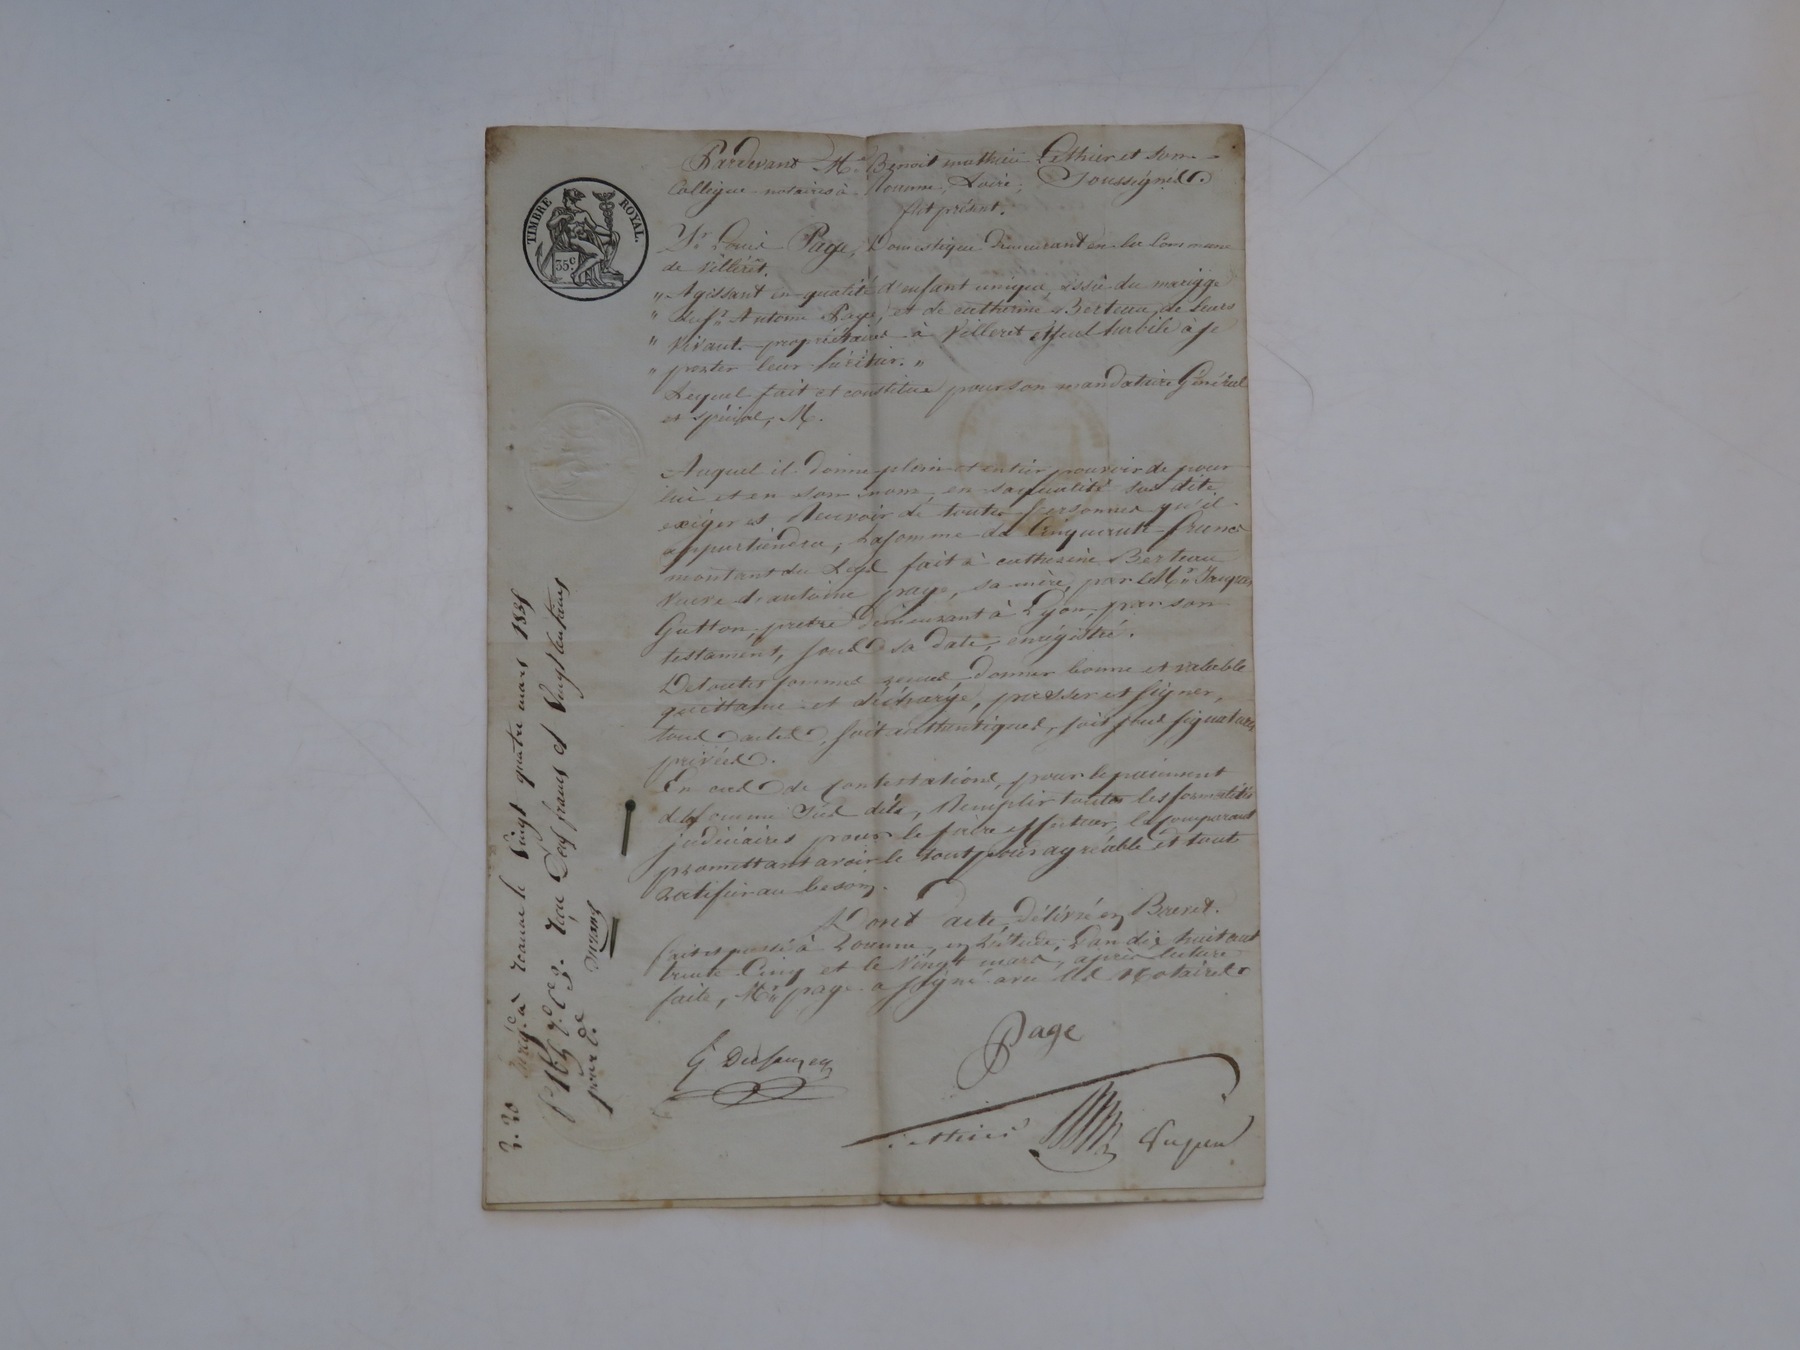 TIMBRE ROYAL.
35 c.
Pardevant Me. Benoit mathieu Lethier et son
Collègue notaires à Roanne, Loire, Soussignés
fut présent.
Sr. Louis Page, Domestique demeurant en la Commune
de Villerêt.
" Agissant en qualité d'enfant unique, issu du mariage
" de Antoine Page, et de catherine Berteau, de leurs
" vivant propriétaires à Villeret et seul habile à se
" porter leur héritier. "
Lequel fait et constitue pour son mandataire Général
et spécial, M.
Auquel il donne plein et entier pouvoir de pour
lui et en son nom, en sa qualité sus dite,
exiger et Recevoir de toutes personnes qu'il
appartiendra, la somme de Cinquante francs
montant du Legs fait à catherine Berteau
veuve d'antoine page, sa mère, par Mr. Jacques
Gutton, prêtre demeurant à Lyon, par son
testament, sous sa date, enrégistré.
De toutes sommes reçues, donner bonne et valable
quittance et décharge, passer et signer,
tous actes, soit authentiques, soit sous signatures
privées.
En cas de contestations, pour le paiement
de somme sus dite, Remplir toutes les formalités
judiciaires pour le faire effectuer, le comparant
promettant avoir le tout pour agréable et tout
ratifier au besoin.
Dont acte, Délivré en Brevet.
fait et passé à Roanne, en L'étude, L'an dix huit cent
trente Cinq et le Vingt mars, après lecture
faite, Mr. page a signé avec les Notaires
Page
Lethier
Enregé. à Roanne le Vingt quatre mars 1835
fo. 165 Reçu Deux francs et Vingt centimes
pour De.
2. 20